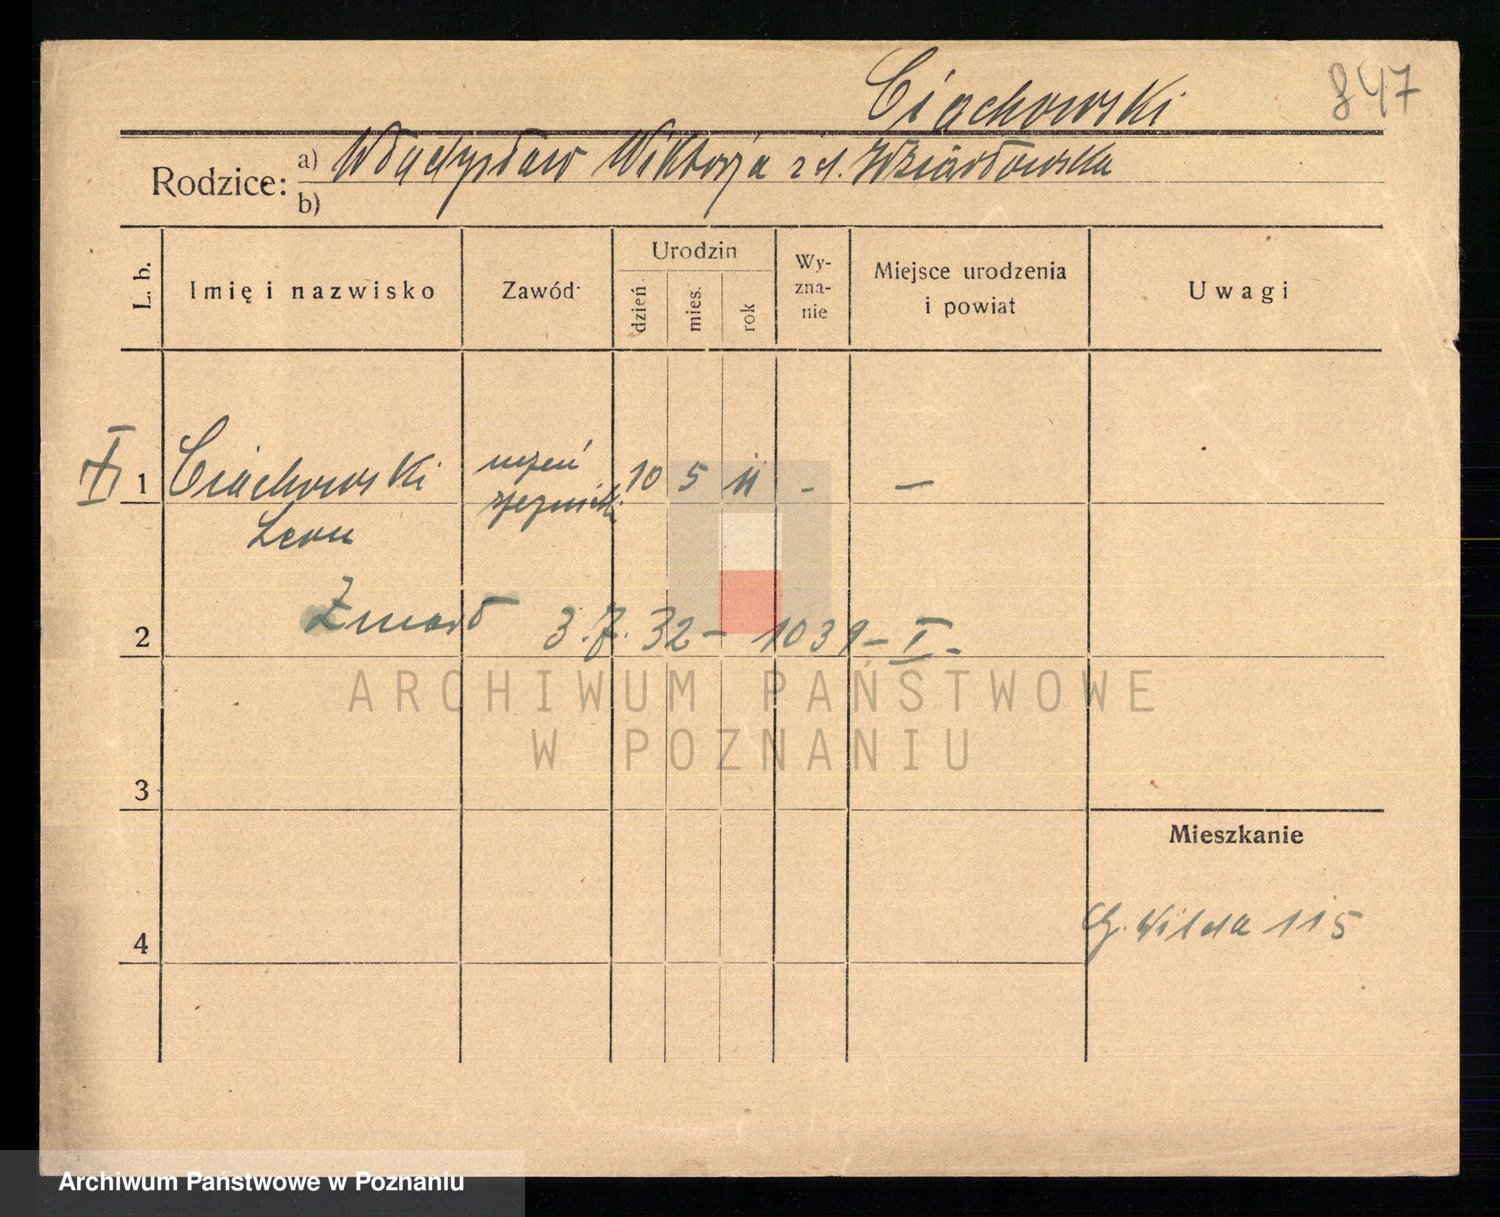 Ciachowski
847
Rodzice: a) Władysław Wiktorja z d.
b)
L. b.
Imię i nazwisko
Zawód
Urodzin
dzień
mies.
rok
Wy-
zna-
nie
Miejsce urodzenia
i powiat
Uwagi
1 Ciachowski uczeń 10 5 11 - -
Leon
Zmarł 3.7.32 - 1039 - I -
2
ARCHIWUM PAŃSTWOWE
W POZNANIU
3
Mieszkanie
G. Wilda 115
4
Archiwum Państwowe w Poznaniu